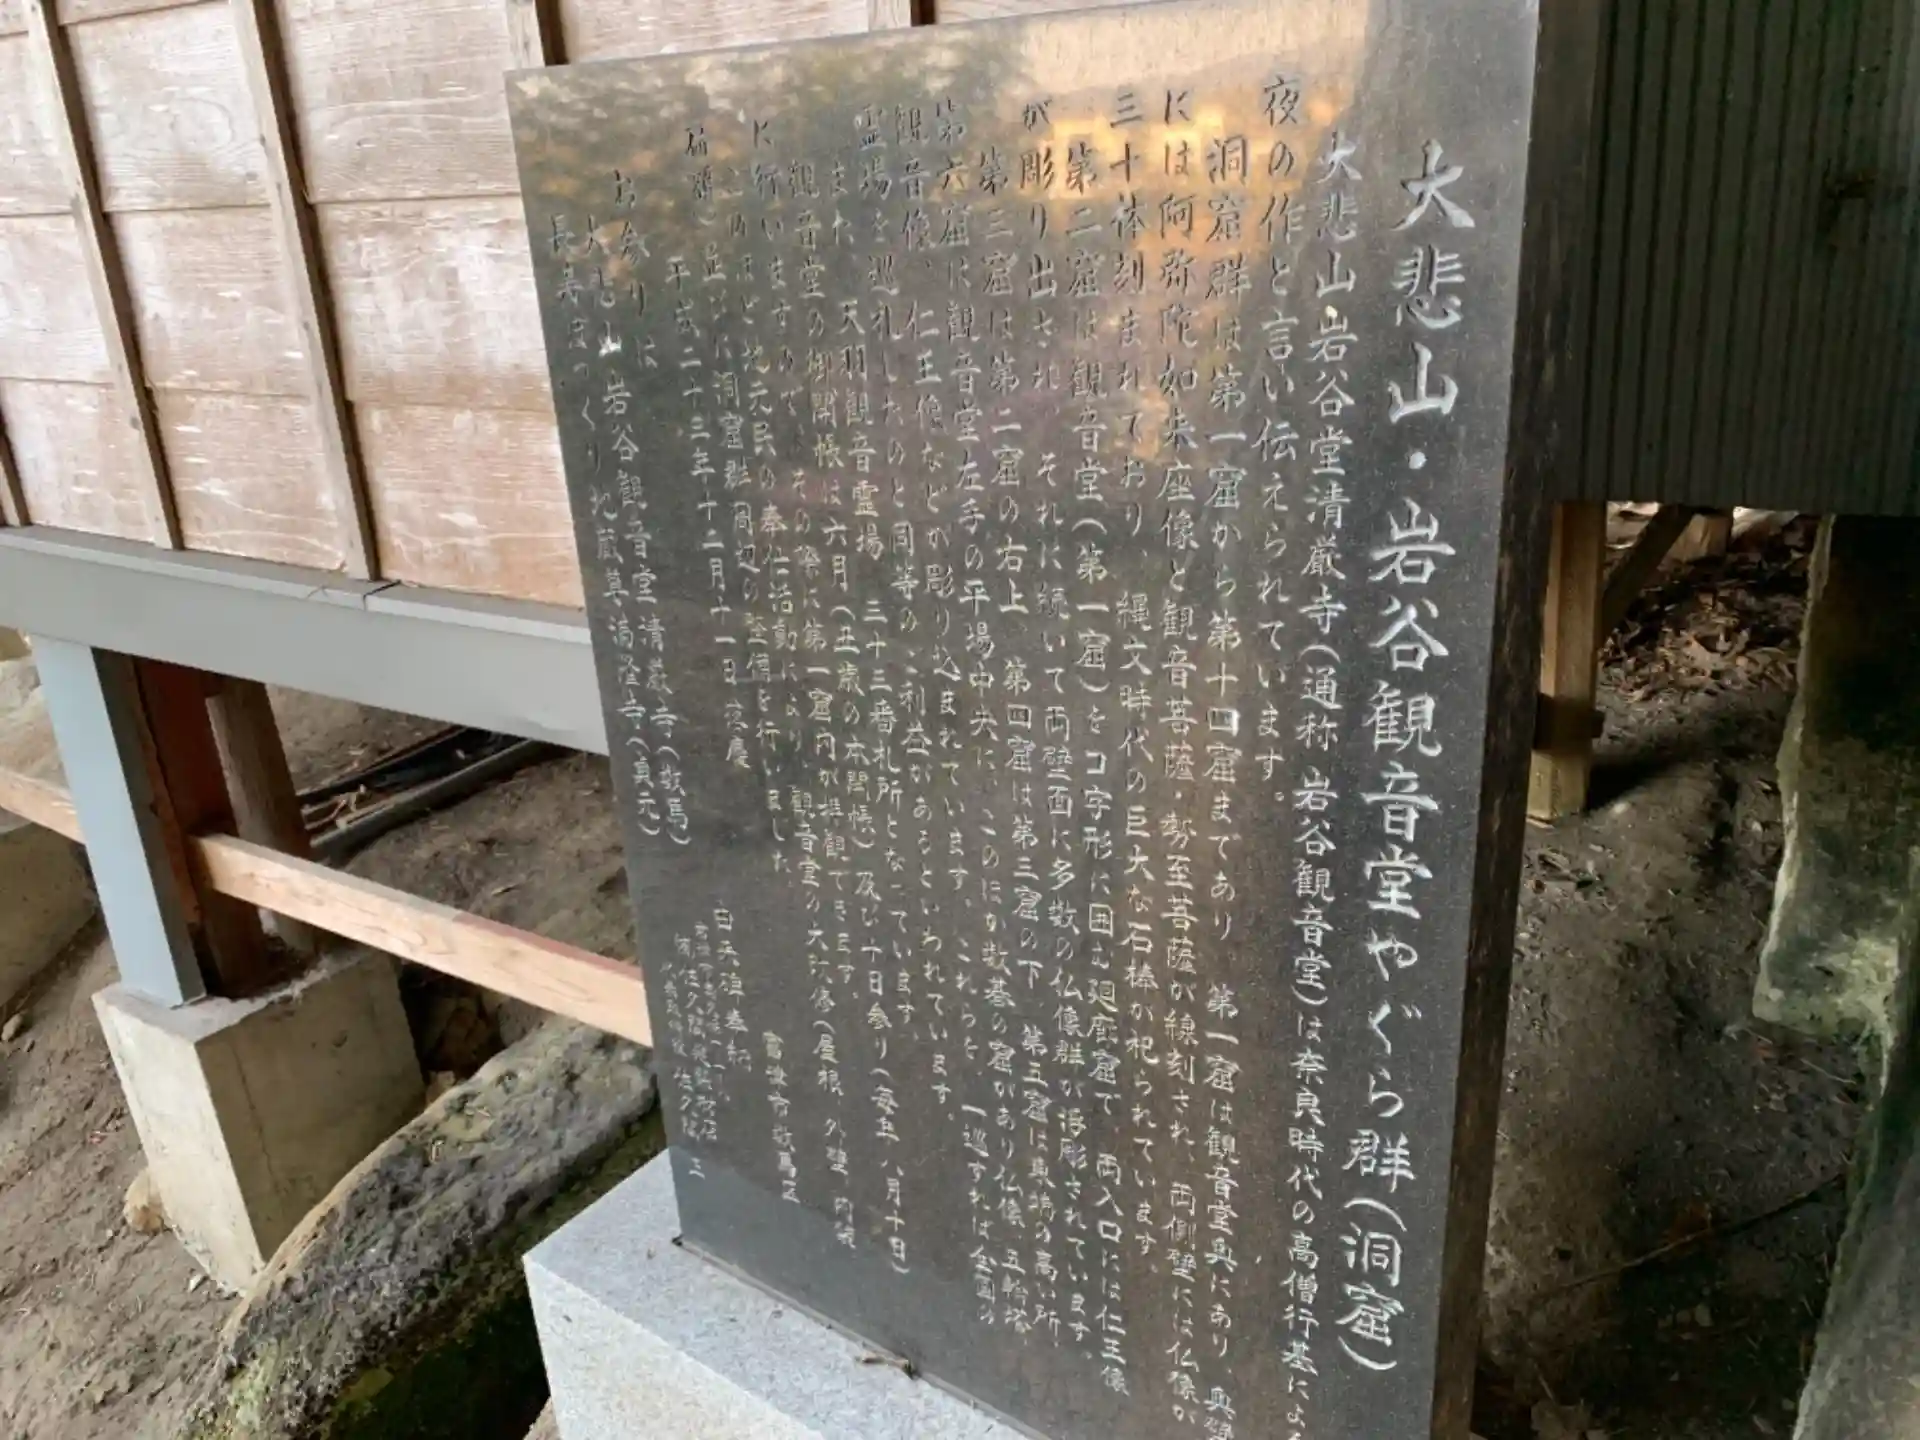 大悲山・岩谷観音堂やぐら群(洞窟)
大悲山岩谷堂清厳寺(通称 岩谷観音堂)は奈良時代の高僧行基によ
夜の作と言い伝えられています。
洞窟群は第一窟から第十四窟まであり 第一窟は観音堂奥にあり、奥壁
には阿弥陀如来座像と観音菩薩・勢至菩薩が線刻され、両側壁には仏像が
三十体刻まれており、縄文時代の巨大な石棒が祀られています。
第二窟は観音堂(第一窟)をコ字形に囲む廻廊窟で、両入口には仁王像
が彫り出され、それに続いて両壁面に多数の仏像群が浮彫されています。
第三窟は第二窟の右上 第四窟は第三窟の下 第五窟は の高い所
第六窟は観音堂左手の平場中央に、このほか数基の窟があり仏像、五輪塔、
観音像、仁王像などが彫り込まれています。これらを、一巡すれば全国の
霊場を巡礼したのと同等のご利益があるといわれています。
また 天羽観音霊場 三十三番札所となっています
観音堂の御開帳は六月(丑歳の本開帳)及び十日参り(毎年 八月十日)
に行いますので、その際に第一窟内が拝観できます。
このほど地元民の奉仕活動により、観音堂の大改修(屋根 外壁 内
並びに洞窟群周辺の を行いました。
平成二十三年十二月十一日 落慶
お参りは
大悲山 岩谷観音堂 清厳寺(数馬)
長寿ぽっくり地蔵尊 満隆寺(真元)